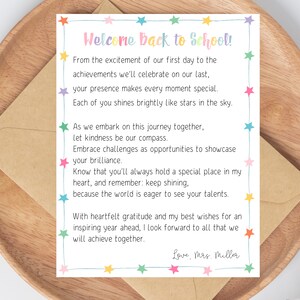 Welcome Back to School!
From the excitement of our first day to the
achievements we'll celebrate on our last,
your presence makes every moment special.
Each of you shines brightly like stars in the sky.
As we embark on this journey together,
let kindness be our compass.
Embrace challenges as opportunities to showcase
your brilliance.
Know that you'll always hold a special place in my
heart, and remember: keep shining,
because the world is eager to see your talents.
With heartfelt gratitude and my best wishes for an
inspiring year ahead, I look forward to all that we
will achieve together.
Love, Mrs. Miller